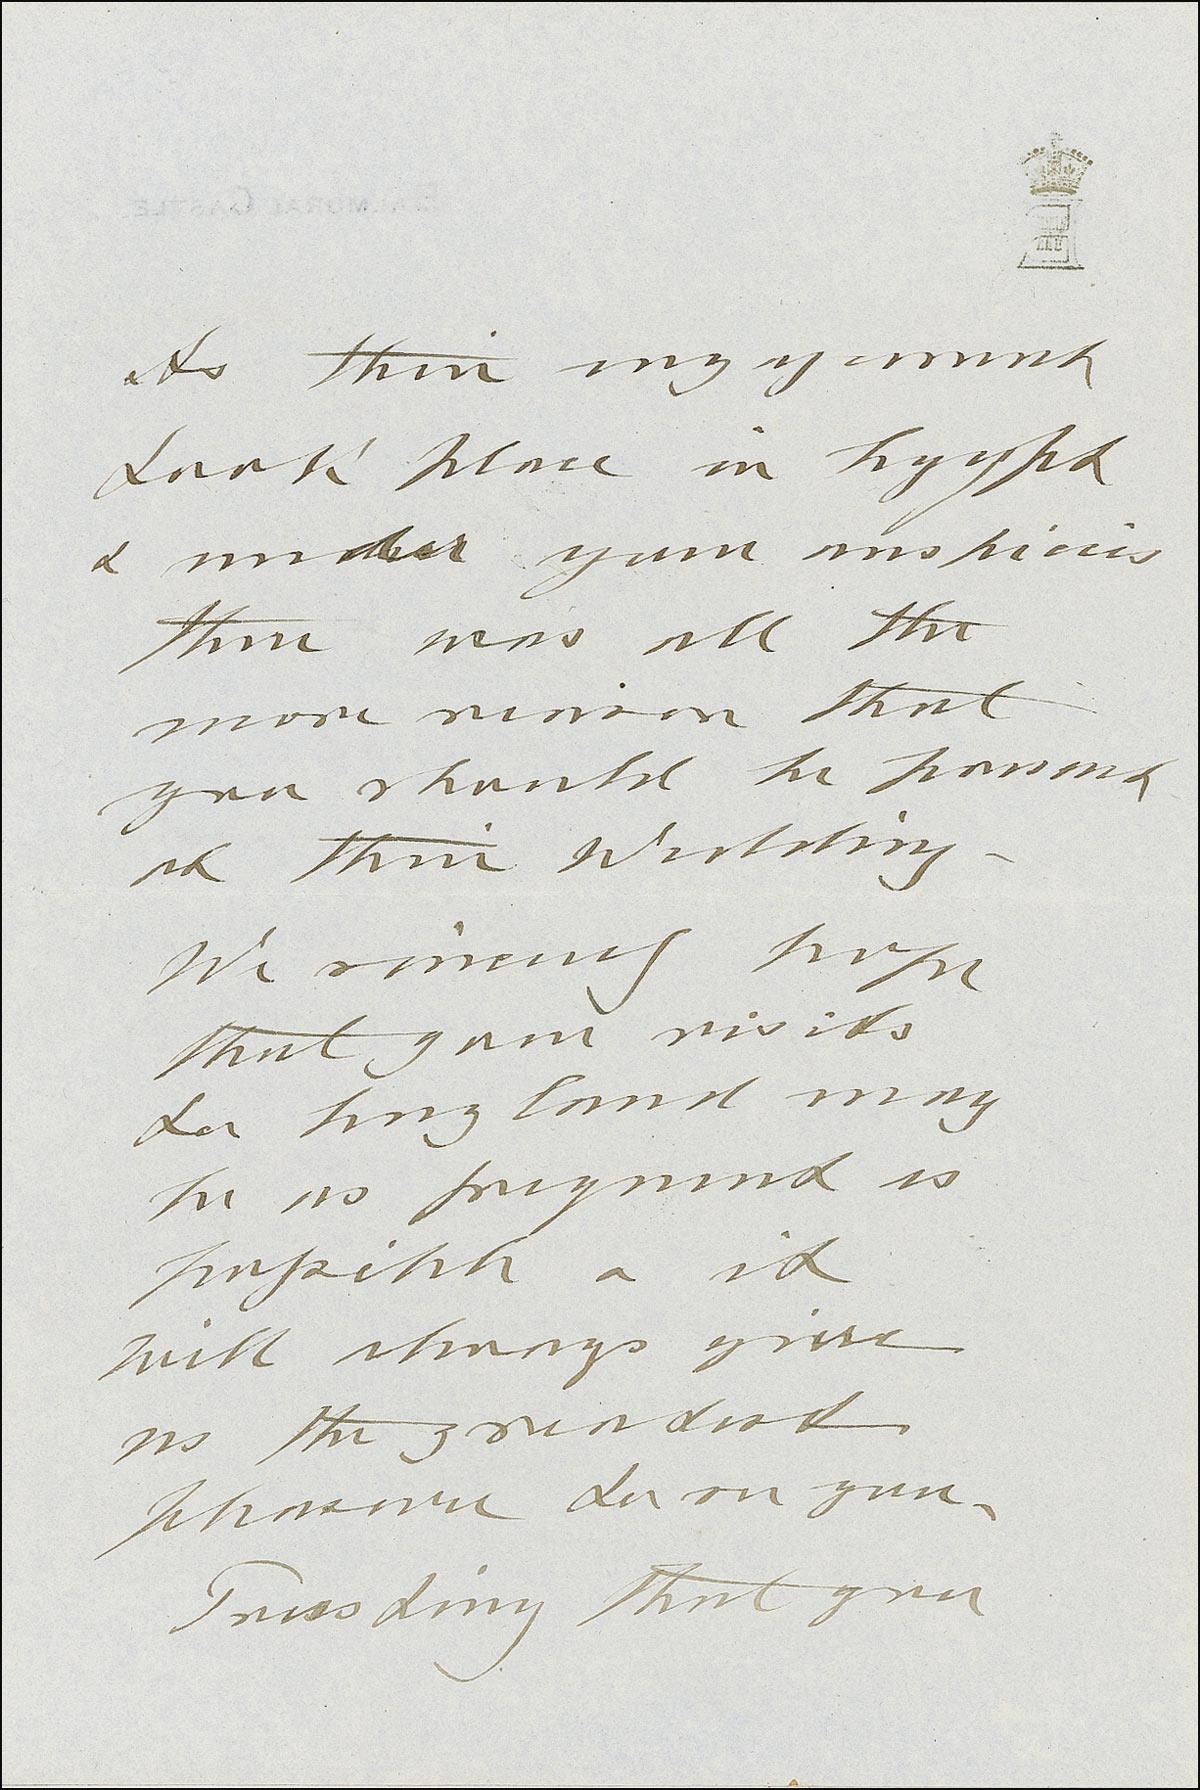 BALMORAL CASTLE.
As their engagement
took place in Egypt
& under your auspices
there was all the
more reason that
you should be present
at their Wedding –
We sincerely hope
that your visits
to England may
be as frequent as
possible & it
will always give
us the greatest
pleasure to see you.
Trusting that you